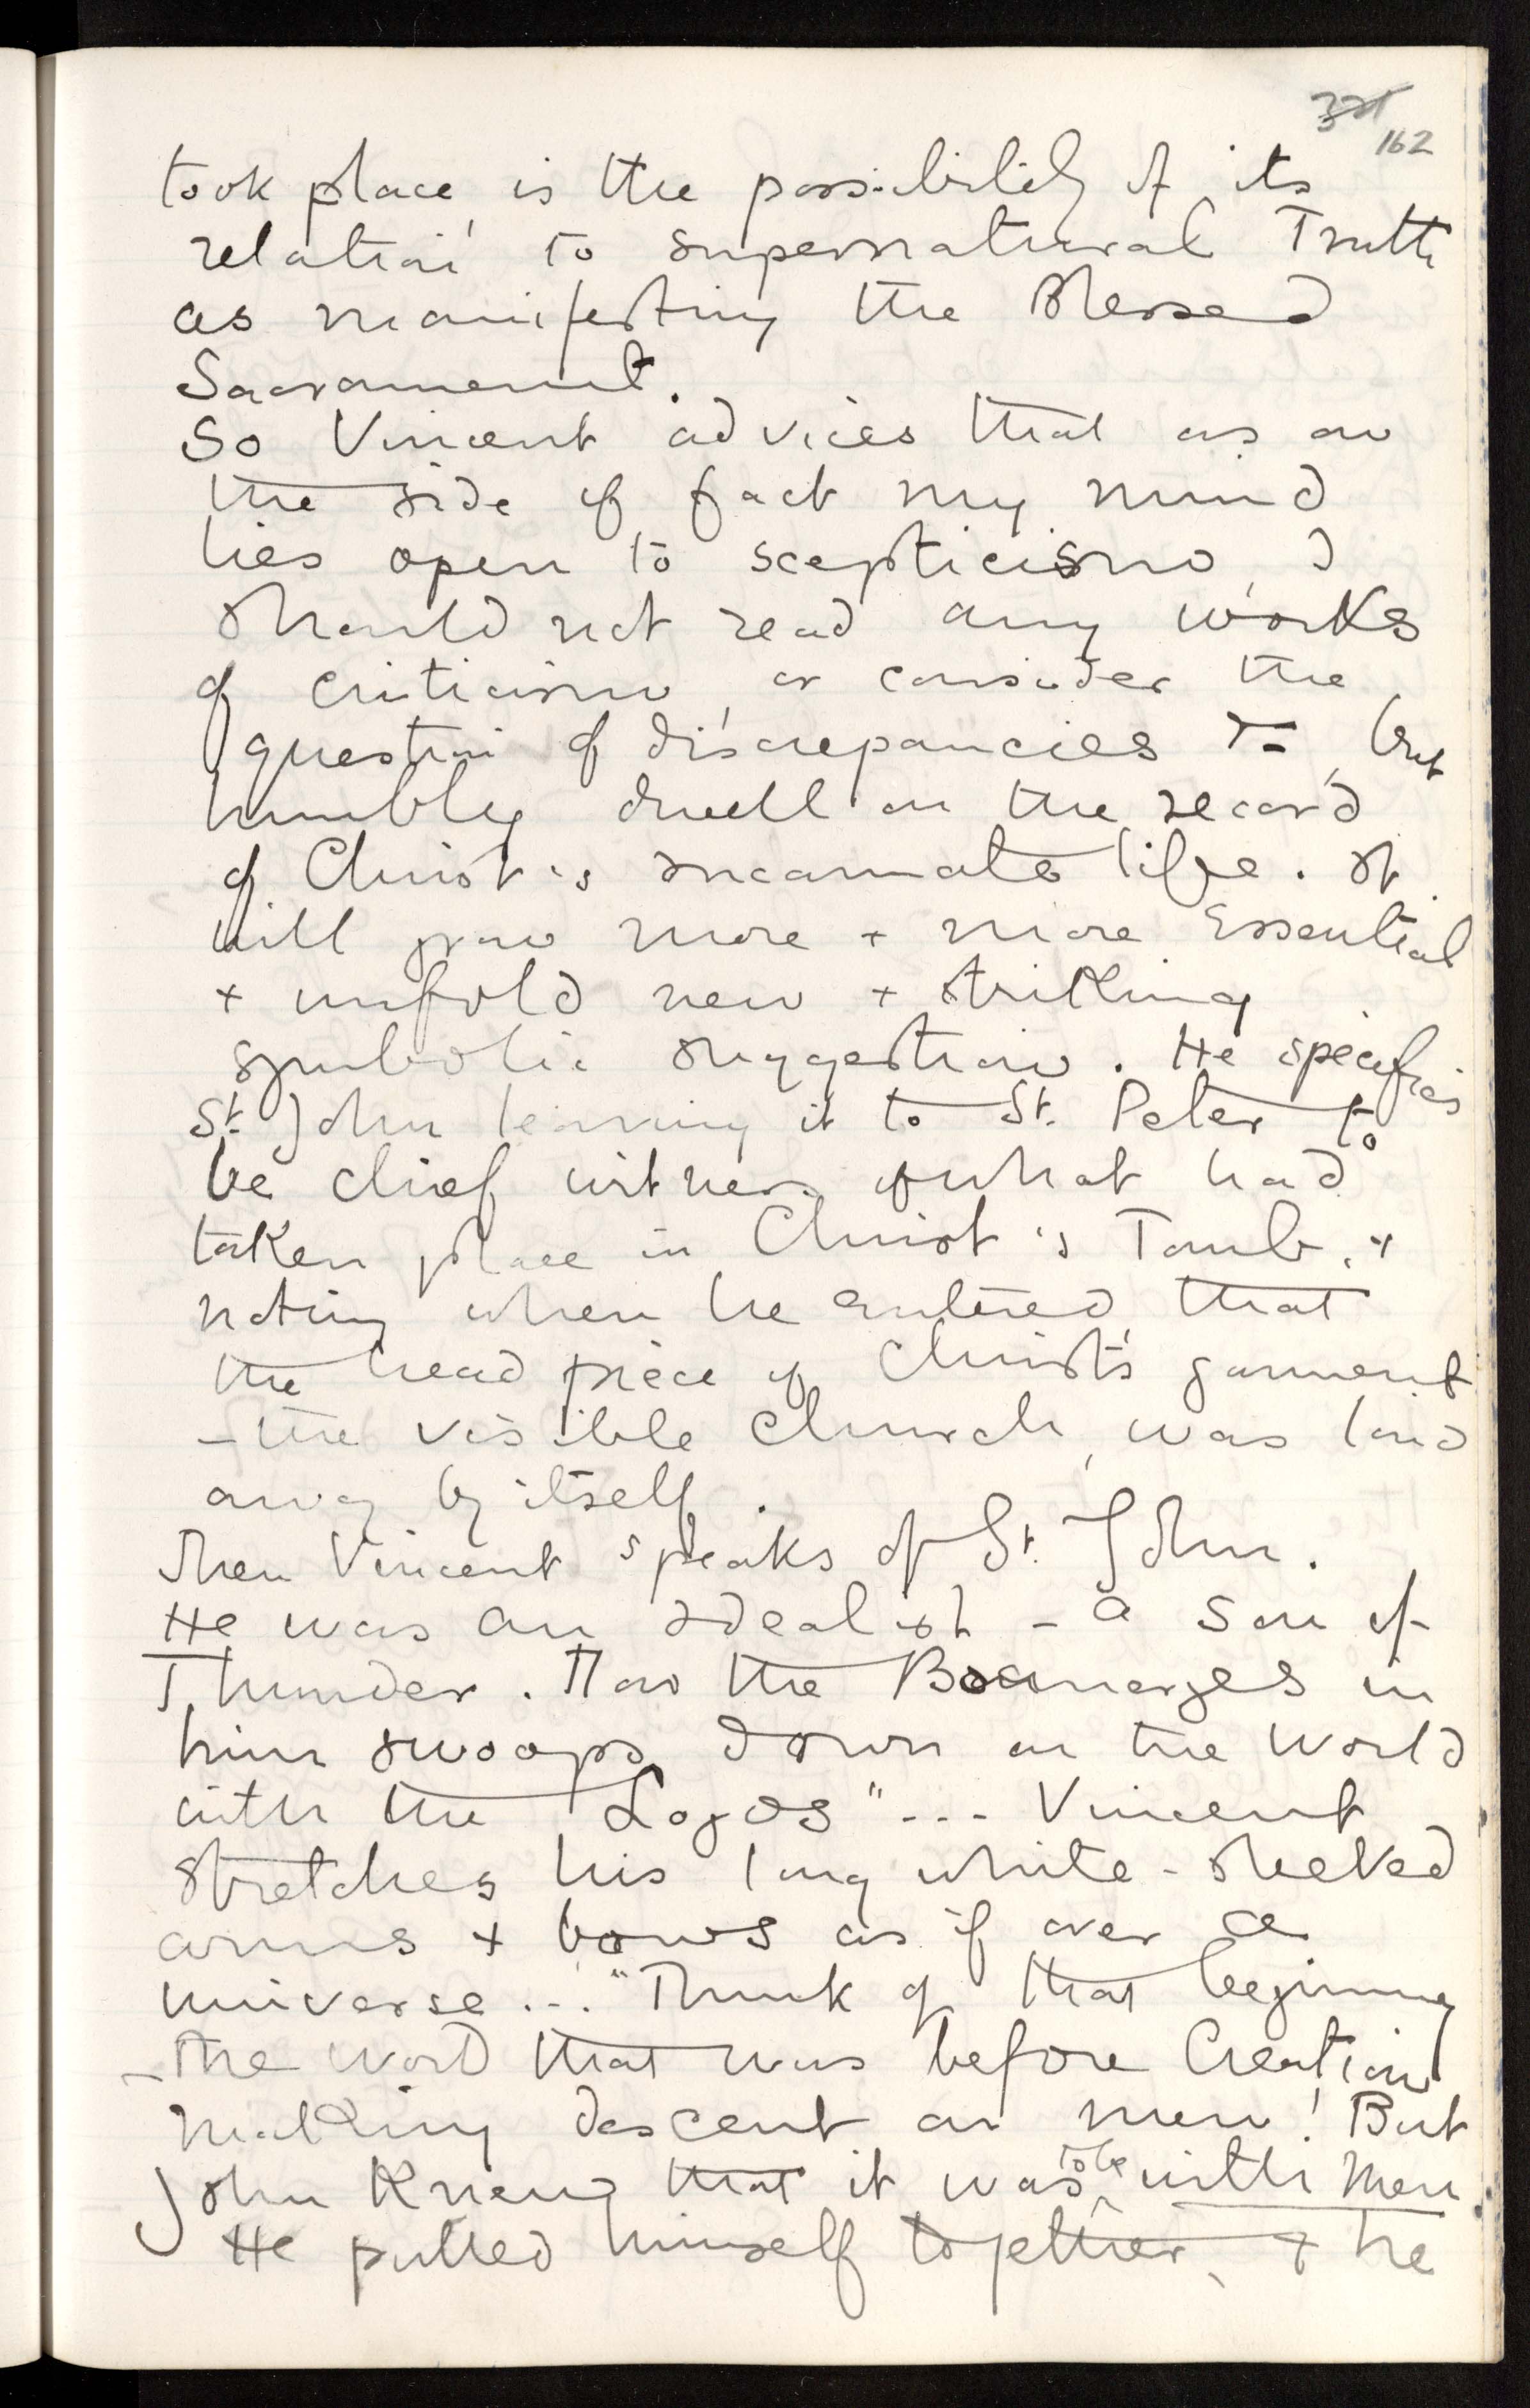 162
took place, is the possibility of its
relation to supernatural Truth
as manifesting the Blessed
Sacrament.
So Vincent advices that as on
the side of fact my mind
lies open to scepticism, I
should not read any works
of criticism, or consider the
question of discrepancies &c, but
humbly dwell on the record
of Christ's incarnate life. It
will grow more + more Essential
+ unfold new + striking
symbolic suggestion. He specifies
St. John leaving it to St. Peter to
be chief witness of what had
taken place in Christ's Tomb, +
noting when he entered that
the head piece of Christ's garment
- the visible Church, was laid
away by itself.
Then Vincent speaks of St. John.
He was an idealist - a son of
Thunder. How the Boanerges in
him swoops down on the World
with the Logos" ... Vincent
stretches his long white-sleeved
arms + bows as if over a
universe... "Think of that beginning
- The Word that was before Creation
making descent on men! But
John Knew that it was to be with Men.
He pulled himself together, + he